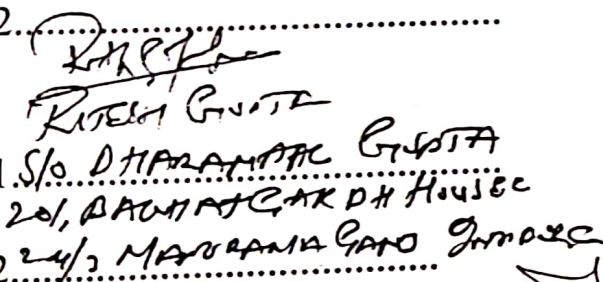 2
RITESH GUPTA
S/o DHARAMPAL GUPTA
201, BAGHATGARDH HOUSE
24/2 MANORAMA GANJ INDORE